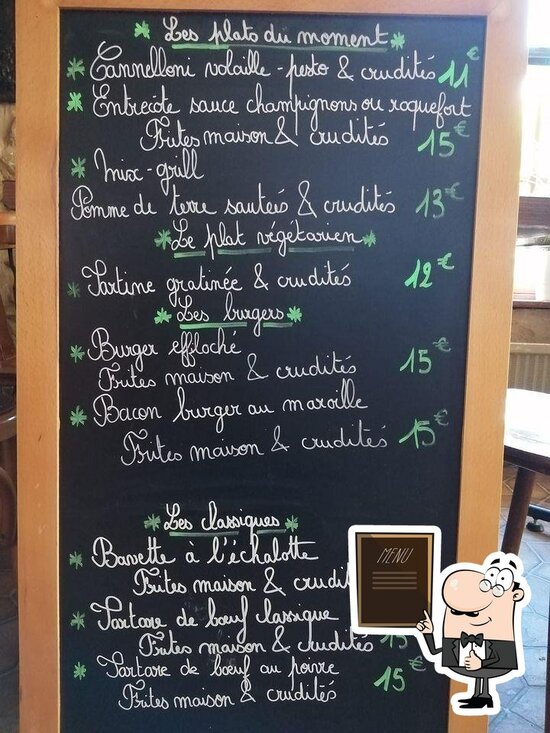 Les plats du moment
Cannelloni volaille - pesto & crudités 11€
Entrecôte sauce champignons ou roquefort
Frites maison & crudités 15€
Mix-grill
Pomme de terre sauteés & crudités 13€
Le plat végétarien
Tartine gratinée & crudités 12€
Les burgers
Burger effloché
Frites maison & crudités 15€
Bacon burger au maroille
Frites maison & crudités 15€
Les classiques
Bavette à l'échalotte
Frites maison &
Tartare de bœuf classique
Frites maison & crudités 15
Tartare de bœuf au poivre
Frites maison & crudités 15€
MENU